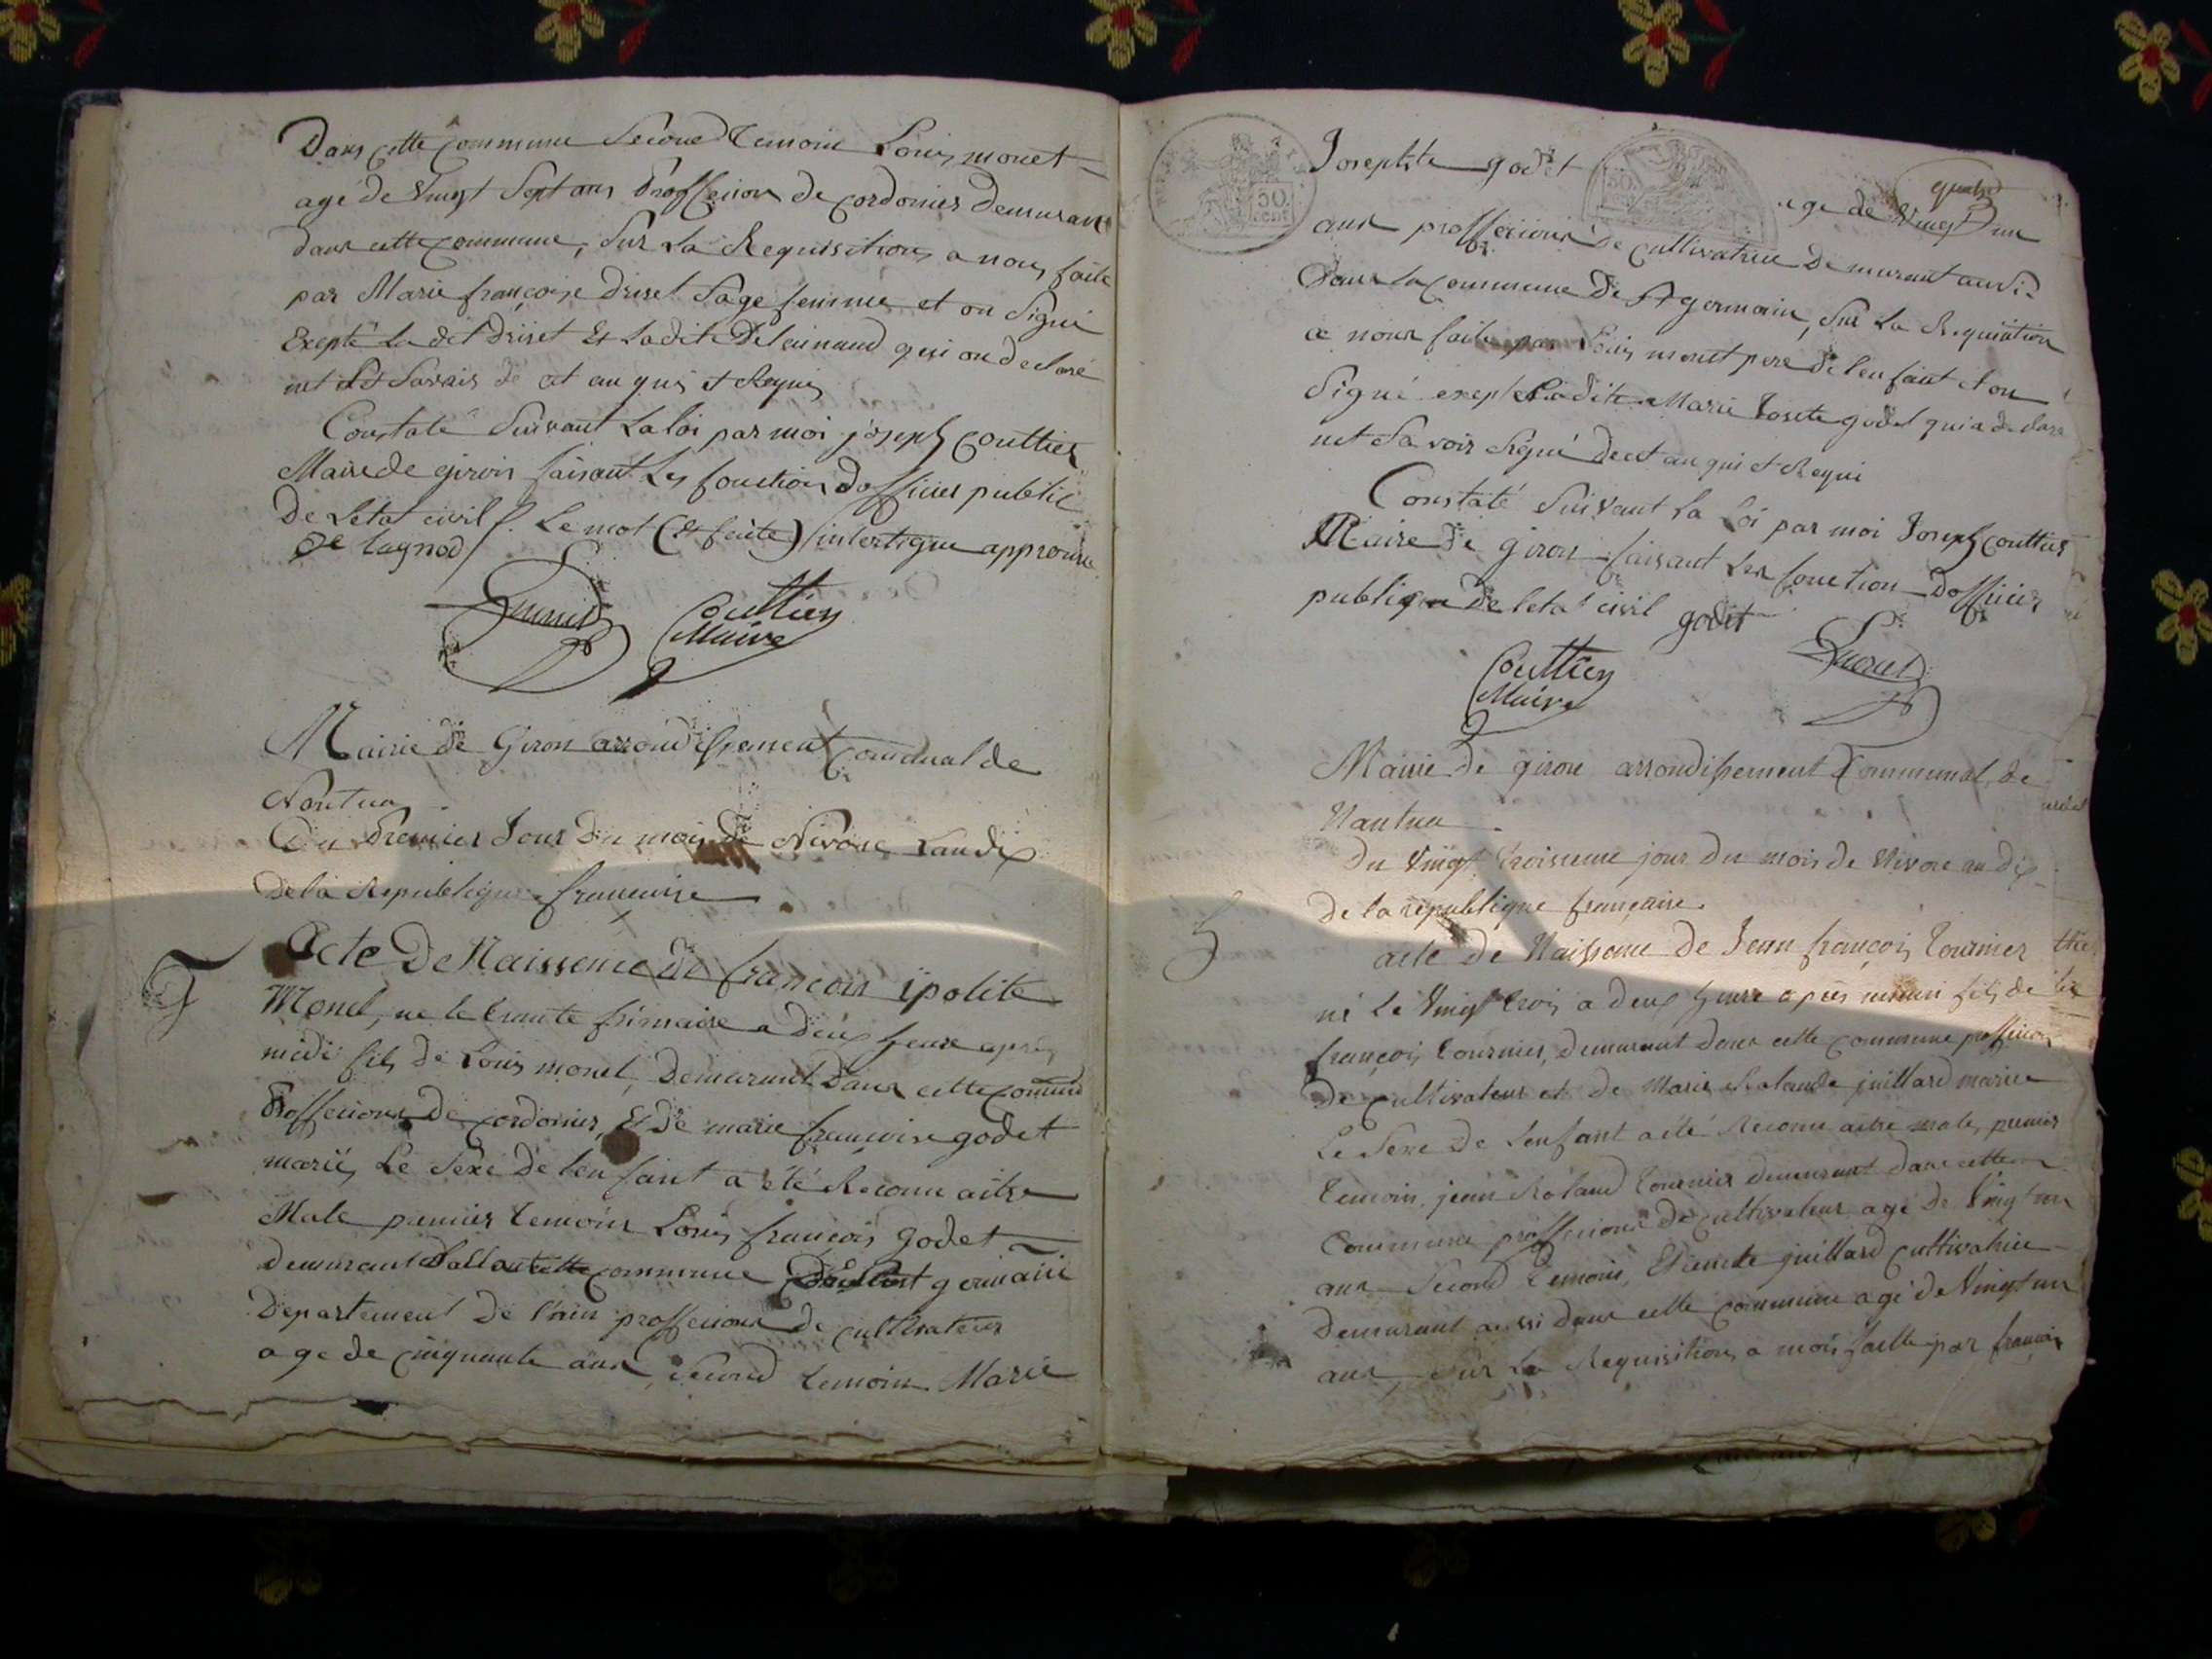 Dans cette commune Second temoin Louis monet
agé de Vingt Sept ans Proffecion de cordonier Demurant
dans cette commune, Sur La Requisition a nous faite
par Marie françoise Driset Sage femme et on Signé
Exepté La dit Driset Et Ladite qui on declaré
de cet au qui et Requis
Constaté Suivant La loi par moi joseph Couttier
Maire de giron faisant Les fonction Dofficier public
De Letat civil Le mot (et faite) approuvé
Couttier
Maire
Mairie de Giron arrondissement Communal de
Nantua
Du Premier Jour Du mois de Nivose Landix
De la Republique francaise
Acte De Naissence de francois ipolite
Monet, ne le trente frimaire a Deux heure apres
midi fils de Louis monet, Demurant Dans cette
Proffecion De cordonier, Et De marie francoise godet
mariés, Le Sexe De lenfant a été Reconu aitre
Male premier temoin Louis françois godet
demurant commune germain
Departement De l'ain proffecion De cultivateur
age de cinquante ans, Second temoin Marie
50 cent
Josephte godet
50
quatre
age de Vingt un
ans proffecion De cultivatrice Demurant
Dans la commune De St germain, Sur La Requisition
a nous faite par Louis monet pere De lenfant et on
Signé exepté Ladite Marie Josete godet qui a declaré
net Savoir Signé de cet au qui et Requi
Constaté Suivant La Loi par moi Joseph Couttier
Maire De giron faisant Les fonction Dofficier
publique De letat civil godet
Couttier
Maire
Mairie De giron arrondissement Communal, de
Nantua
Du Vingt troisieme jour Du mois de Nivose an dix
De la republique française
5
acte De Naissance De Jean françois tournier
né Le Vingt trois a deux heure apres fils de
françois tournier, Demurant dans cette commune proffecion
De cultivateur et De Marie Rolande juillard mariés
Le Sexe De Lenfant a eté Reconu aitre male, premier
temoin, jean Roland tournier demurant dans cette
Commune proffecion De cultivateur agé De Vingt un
ans Second temoin, juillard cultivatrice
Demurant aussi dans cette commune agé De Vingt un
ans, Sur La Requisition a moi faitte par francois